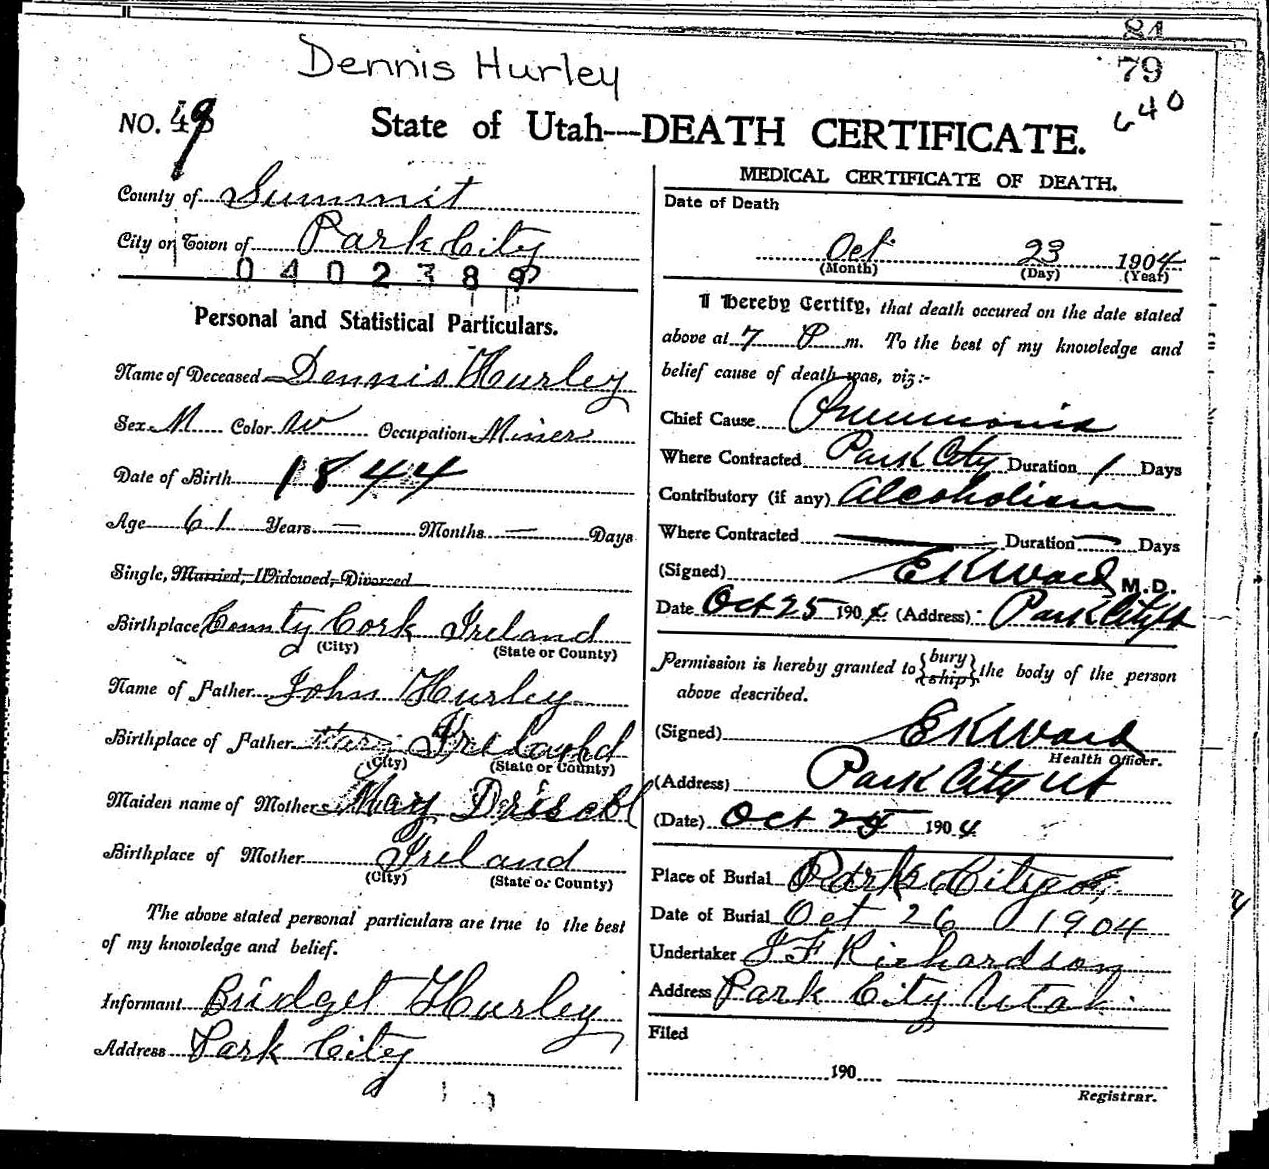 84
79
640
Dennis Hurley
NO. 49
State of Utah---DEATH CERTIFICATE.
County of Summit
City or Town of Park City
0402389
Personal and Statistical Particulars.
Name of Deceased Dennis Hurley
Sex M Color W Occupation Miner
Date of Birth 1844
Age 61 Years — Months — Days
Single, Married, Widowed, Divorced
Birthplace County Cork Ireland
(City) (State or County)
Name of Father John Hurley
Birthplace of Father Ireland
(City) (State or County)
Maiden name of Mother Mary Driscol
Birthplace of Mother Ireland
(City) (State or County)
The above stated personal particulars are true to the best
of my knowledge and belief.
Informant Bridget Hurley
Address Park City
MEDICAL CERTIFICATE OF DEATH.
Date of Death
Oct. 23 1904
(Month) (Day) (Year)
I Hereby Certify, that death occured on the date stated
above at 7 P m. To the best of my knowledge and
belief cause of death was, viz:-
Chief Cause Pneumonia
Where Contracted Park City Duration 1 Days
Contributory (if any) Alcoholism
Where Contracted — Duration — Days
(Signed) EKWard M.D.
Date Oct 25 1904 (Address) Park City Ut
Permission is hereby granted to {bury
{ship} the body of the person
above described.
(Signed) EKWard
Health Officer.
(Address) Park City Ut
(Date) Oct 1904
Place of Burial Park City
Date of Burial Oct 26 1904
Undertaker J F Richardson
Address Park City Utah.
Filed
190
Registrar.